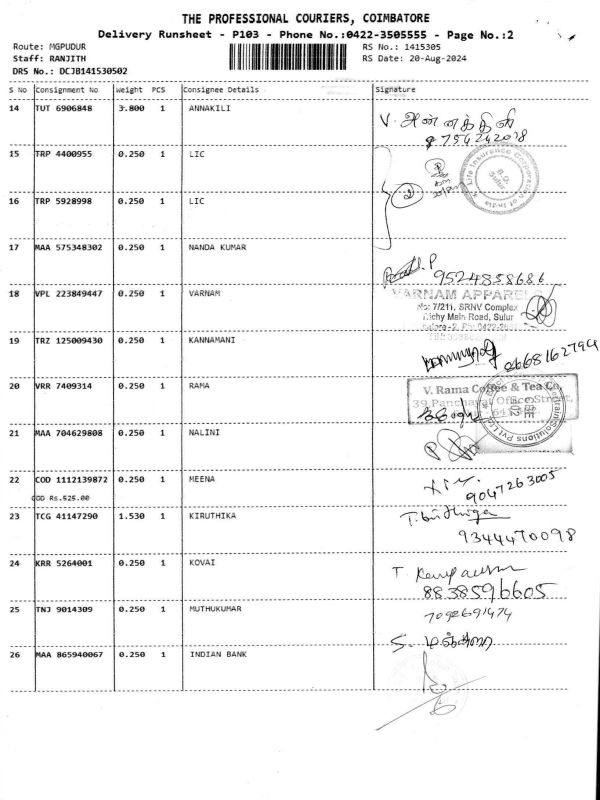 THE PROFESSIONAL COURIERS, COIMBATORE
Delivery Runsheet - P103 - Phone No.:0422-3505555 - Page No.:2
Route: MGPUDUR RS No.: 1415305
Staff: RANJITH RS Date: 20-Aug-2024
DRS No.: DCJB141530502
S No Consignment No Weight PCS Consignee Details Signature
14 TUT 6906848 3.800 1 ANNAKILI
V.
15 TRP 4400955 0.250 1 LIC
Life Insurance Corporation of India
B.O.
Sulur
2
16 TRP 5928998 0.250 1 LIC
17 MAA 575348302 0.250 1 NANDA KUMAR
P
9524858686
18 VPL 223849447 0.250 1 VARNAM
VARNAM APPARELS
No: 7/211, SRNV Complex
Trichy Main Road, Sulur
19 TRZ 125009430 0.250 1 KANNAMANI
9668162794
20 VRR 7409314 0.250 1 RAMA
V. Rama Coffee & Tea Co,
39, Panchayat Office Street,
21 MAA 704629808 0.250 1 NALINI
22 COD 1112139872 0.250 1 MEENA
9047263005
COD Rs.525.00
23 TCG 41147290 1.530 1 KIRUTHIKA
9344470098
24 KRR 5264001 0.250 1 KOVAI
T.
8838596605
25 TNJ 9014309 0.250 1 MUTHUKUMAR
7092691474
S.
26 MAA 865940067 0.250 1 INDIAN BANK